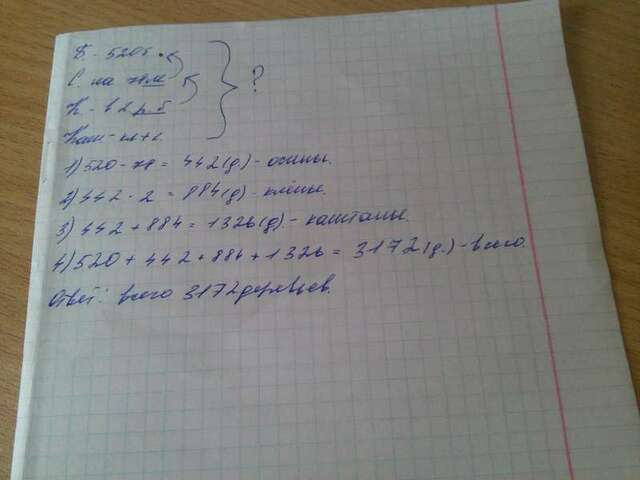 Б - 520б.
С. на 78м
К - в 2 р. б
Каш - кл + с
?
1) 520 - 78 = 442 (д) - осины.
2) 442 · 2 = 884 (д) - клёны.
3) 442 + 884 = 1326 (д) - каштаны.
4) 520 + 442 + 884 + 1326 = 3172 (д.) - всего.
Ответ: всего 3172 деревьев.